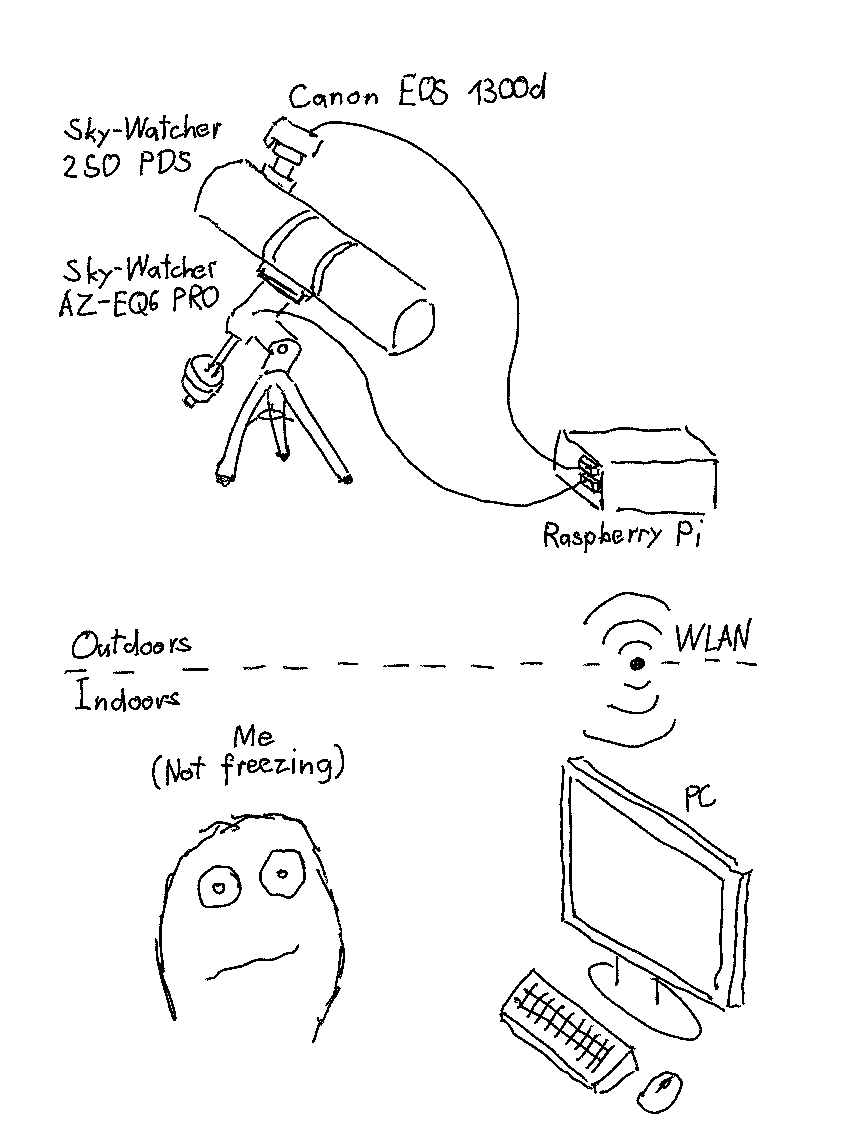 Canon EOS 1300d
Sky-Watcher
250 PDS
Sky-Watcher
AZ-EQ6 PRO
Raspberry Pi
WLAN
Outdoors
Indoors
Me
(Not freezing)
PC